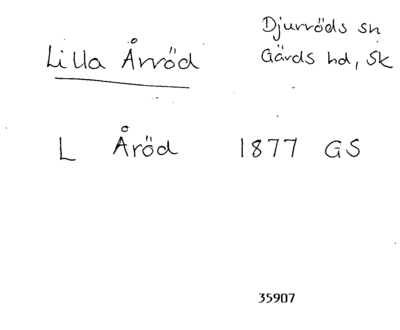 Lilla Årröd
Djurröds sn
Gärds hd, Sk
L Åröd 1877 GS
35907